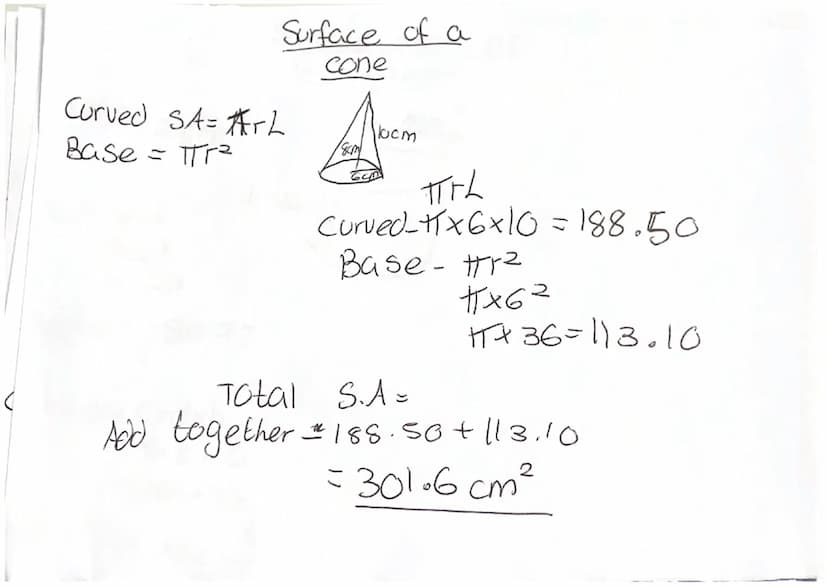 Surface of a
cone
Curved SA= πrL
Base = πr²
10cm
8cm
6cm
πrL
Curved-π×6×10 = 188.50
Base - πr²
π×6²
π×36=113.10
Total S.A=
Add together = 188.50 + 113.10
= 301.6 cm²